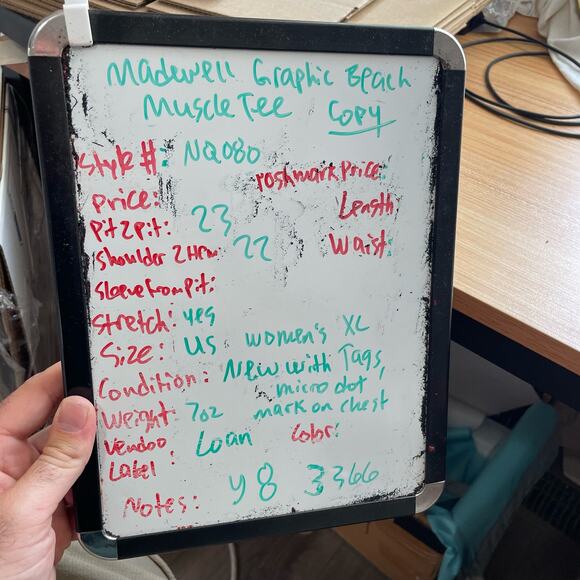 Madewell Graphic Beach
Muscle Tee Copy
Style #: NQ080
Poshmark Price:
Price:
Length
Pit2Pit: 23
Waist:
Shoulder 2 Hem: 22
Sleeve from pit:
Stretch: yes
Size: US Women's XL
Condition: New with Tags,
micro dot
mark on chest
Weight: 7oz
Vendoo Label: Loan
Color:
Notes: Y8 3366